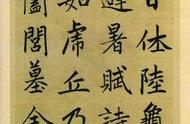 日休陸龜
避暑賦詩
如虎丘乃
闔閭墓